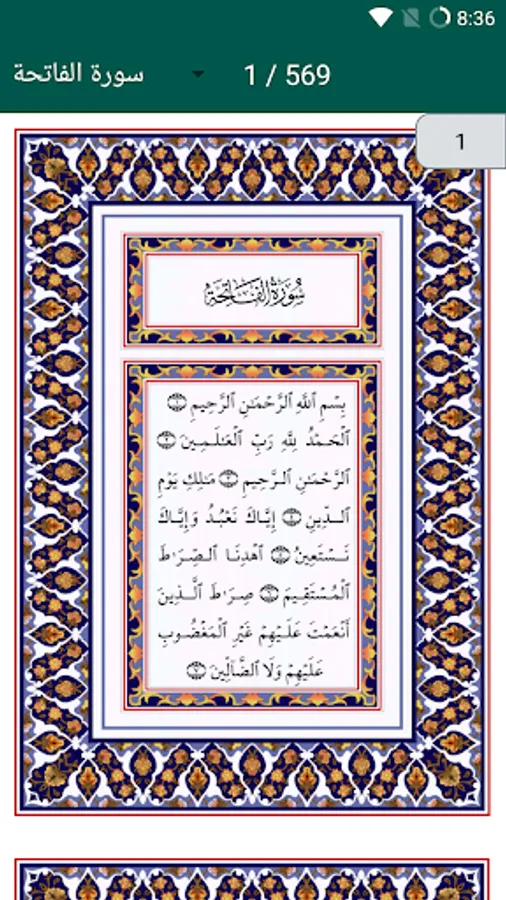 8:36
سورة الفاتحة
1 / 569
1
سُورَةُ الْفَاتِحَةِ
بِسْمِ ٱللَّهِ ٱلرَّحْمَٰنِ ٱلرَّحِيمِ ١
ٱلْحَمْدُ لِلَّهِ رَبِّ ٱلْعَٰلَمِينَ ٢
ٱلرَّحْمَٰنِ ٱلرَّحِيمِ ٣ مَٰلِكِ يَوْمِ
ٱلدِّينِ ٤ إِيَّاكَ نَعْبُدُ وَإِيَّاكَ
نَسْتَعِينُ ٥ ٱهْدِنَا ٱلصِّرَٰطَ
ٱلْمُسْتَقِيمَ ٦ صِرَٰطَ ٱلَّذِينَ
أَنْعَمْتَ عَلَيْهِمْ غَيْرِ ٱلْمَغْضُوبِ
عَلَيْهِمْ وَلَا ٱلضَّآلِّينَ ٧